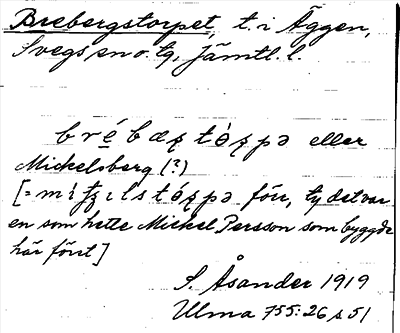 Brebergstorpet, t. i Äggen,
Svegs sn o. tg, Jämtl. l.
brébæʂtòʂpə eller
Mickelsberg (?)
[= mìʈʂɩlstóʂpə förr, ty det var
en som hette Mickel Persson som byggde
här först]
S. Åsander 1919
Ulma 755:26 s 51